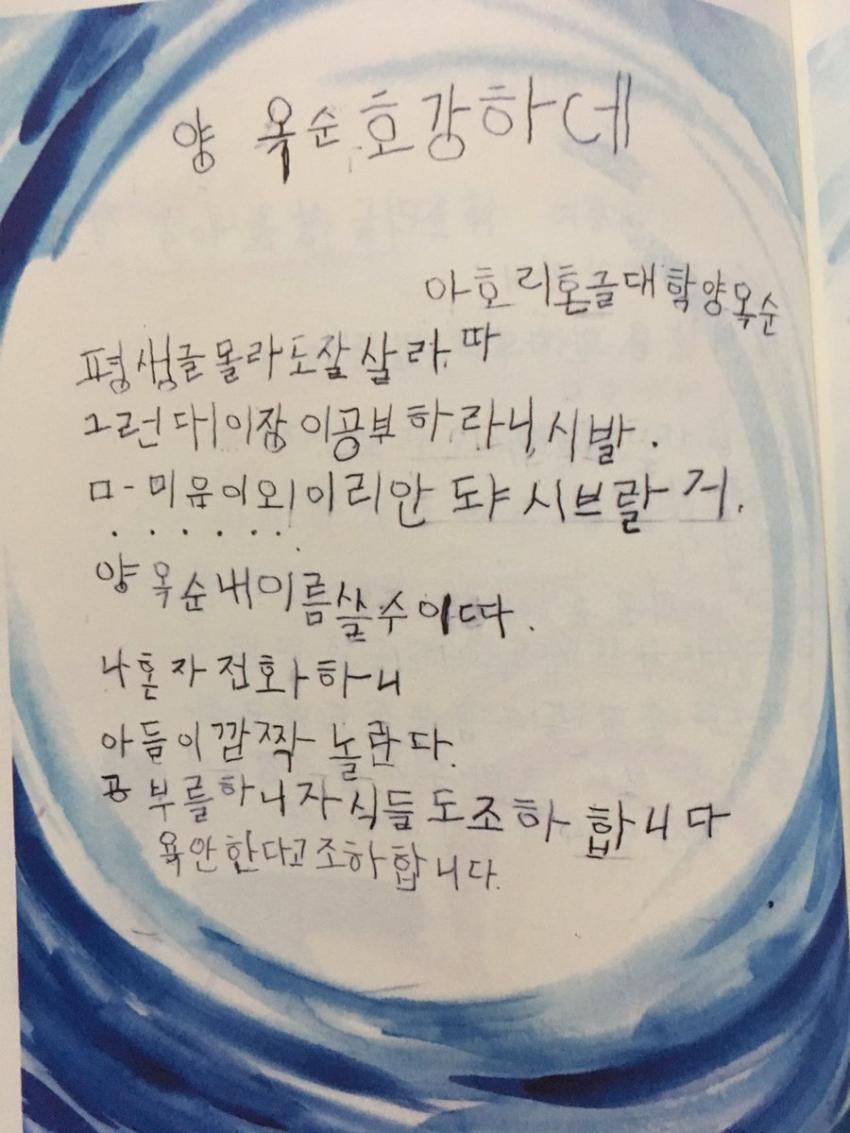 양 옥순 호강하데
아호리한글대학양옥순
평생글몰라도잘살라따
그런대이장이공부하라니시발.
ㅁ-미음이왜이리안 돠 시브랄거.
. . . . . . .
양옥순내이름쓸수이따.
나혼자전화하니
아들이깜짝놀란다.
공부를하니자식들도조하합니다
욕안한다고조하합니다.